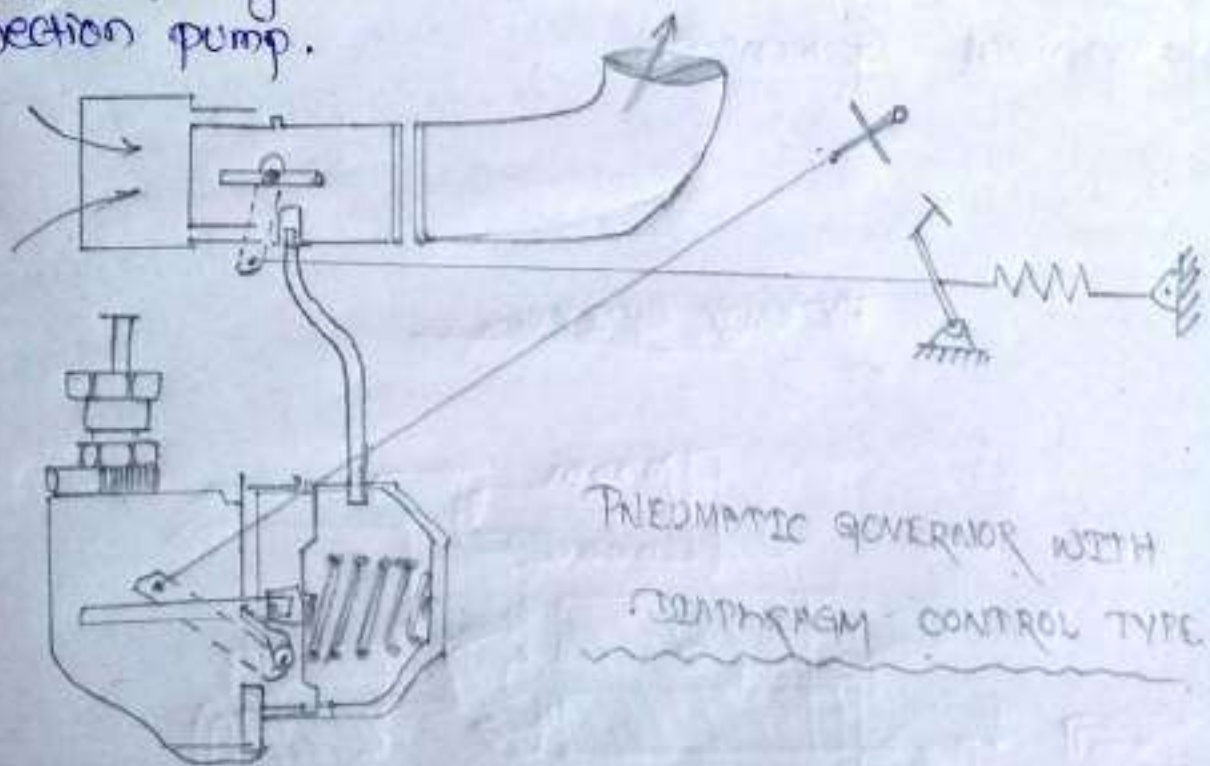 ection pump.
PNEUMATIC GOVERNOR WITH
DIAPHRAGM CONTROL TYPE